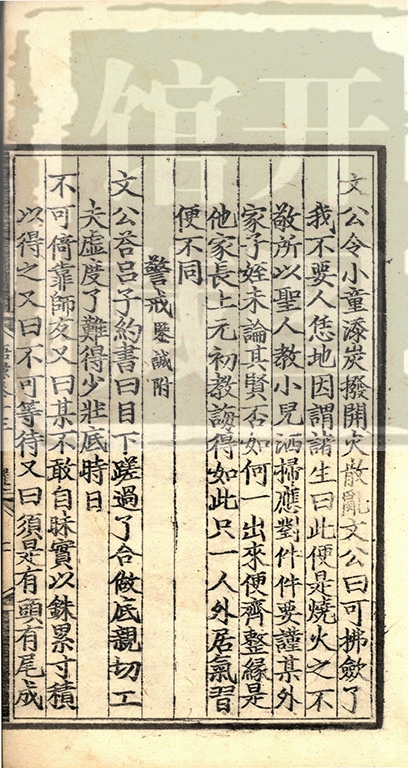 文公令小童添炭撥開火散亂文公曰可拂斂了
我不要人恁地因謂諸生曰此便是燒火之不
敬所以聖人教小兒洒掃應對件件要謹某外
家子姪未論其賢否如何一出來便齊整緣是
他家長上元初教誨得如此只一人外居氣習
便不同
警戒鑒誡附
文公荅吕子約書曰目下蹉過了合做底親切工
夫虛度了難得少壯底時日
不可倚靠師友又曰某不敢自昧實以銖累寸積
以得之又曰不可等待又曰須是有頭有尾成